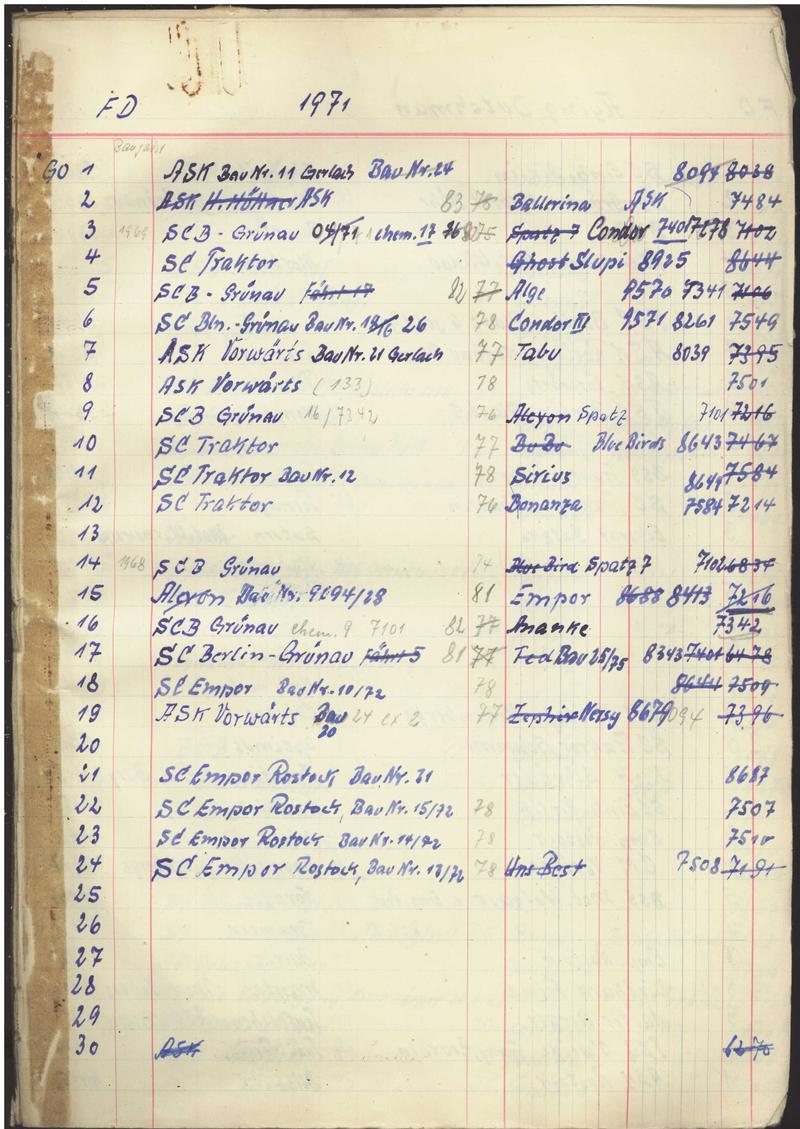 FD 1971
Baujahr
GO 1 ASK Bau Nr. 11 Gerlach Bau Nr. 24 8094 8038
2 ASK H. Hüttner ASK 83 78 Ballerina ASK 7484
3 1969 SCB - Grünau 04/71 chem. 17 75 Spatz 7 Condor 7401 7178 7102
4 SC Traktor Ghost Slupi 8925 8644
5 SCB - Grünau fährt 17 82 77 Alge 9570 7341 7106
6 SC Bln.-Grünau Bau Nr. 26 78 Condor III 9571 8261 7549
7 ASK Vorwärts Bau Nr. 21 Gerlach 77 Tabu 8039 7395
8 ASK Vorwärts (133) 78 7501
9 SCB Grünau 16/7342 76 Alcyon Spatz 7101 7216
10 SC Traktor 77 BoBo Blue Birds 8643 7467
11 SC Traktor Bau Nr. 12 78 Sirius 8649 7584
12 SC Traktor 76 Bonanza 7584 7214
13
14 1968 SCB Grünau 74 Blue Bird Spatz 7 7102 6834
15 Alcyon Bau Nr. 9094/28 81 Empor 8688 8413 7216
16 SCB Grünau chem. 9 7101 82 77 Ananke 7342
17 SC Berlin-Grünau fährt 5 81 77 Ted Bau 25/75 8343 7401 6478
18 SC Empor Bau Nr. 10/72 78 8644 7509
19 ASK Vorwärts Bau 24 ex 2 77 Zephir Nersy 8679 094 7396
20
20
21 SC Empor Rostock, Bau Nr. 31 8687
22 SC Empor Rostock, Bau Nr. 15/72 78 7507
23 SC Empor Rostock Bau Nr. 14/72 78 7510
24 SC Empor Rostock, Bau Nr. 13/72 78 Uns Best 7508 7191
25
26
27
28
29
30 ASK 6270